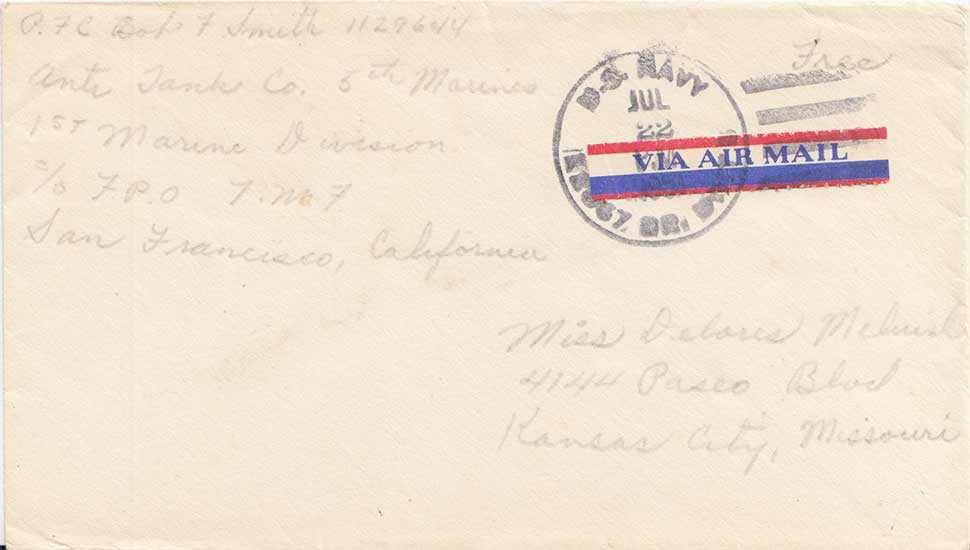 P.F.C Bob F Smith 1129644
Anti Tank Co. 5th Marines
1st Marine Division
c/o F.P.O
San Francisco, California
Free
U.S. NAVY
JUL
22
BR.
VIA AIR MAIL
Miss Delores
4144 Paseo Blvd
Kansas City, Missouri